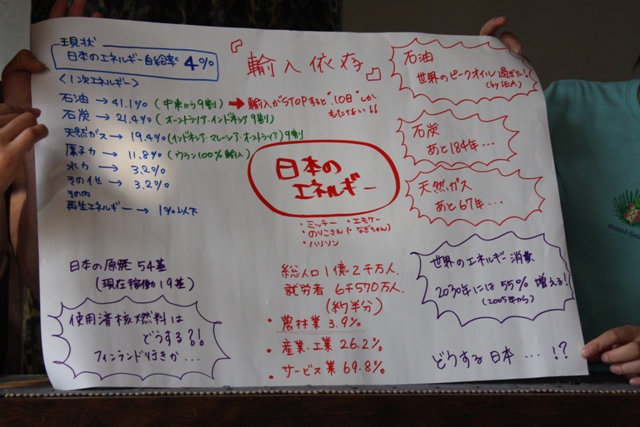 現状
日本のエネルギー自給率 4%
〈1次エネルギー〉
石油 → 41.1% (中東から9割) → 輸入がSTOPすると"10日"しか
もたない!!
石炭 → 21.4% (オーストラリア・インドネシア 9割)
天然ガス → 19.4% (インドネシア・マレーシア・オーストラリア) 9割
原子力 → 11.8% (ウラン100%輸入)
水力 → 3.2%
その他 → 3.2%
その内
再生エネルギー → 1%以下
日本の原発 54基
(現在稼働 19基)
使用済核燃料は
どうする?!
フィンランド行きか...
『輸入依存』
日本の
エネルギー
・ミッチー ・エモケー
・のりこさん(・なぎちゃん)
・ハリソン
総人口 1億2千万人
就労者 6千570万人
(約半分)
・農林業 3.9%
・産業・工業 26.2%
・サービス業 69.8%
石油
世界のピークオイル過ぎた!
(by IEA)
石炭
あと184年...
天然ガス
あと67年...
世界のエネルギー消費
2030年には55%増える!
(2005年から)
どうする日本...!?